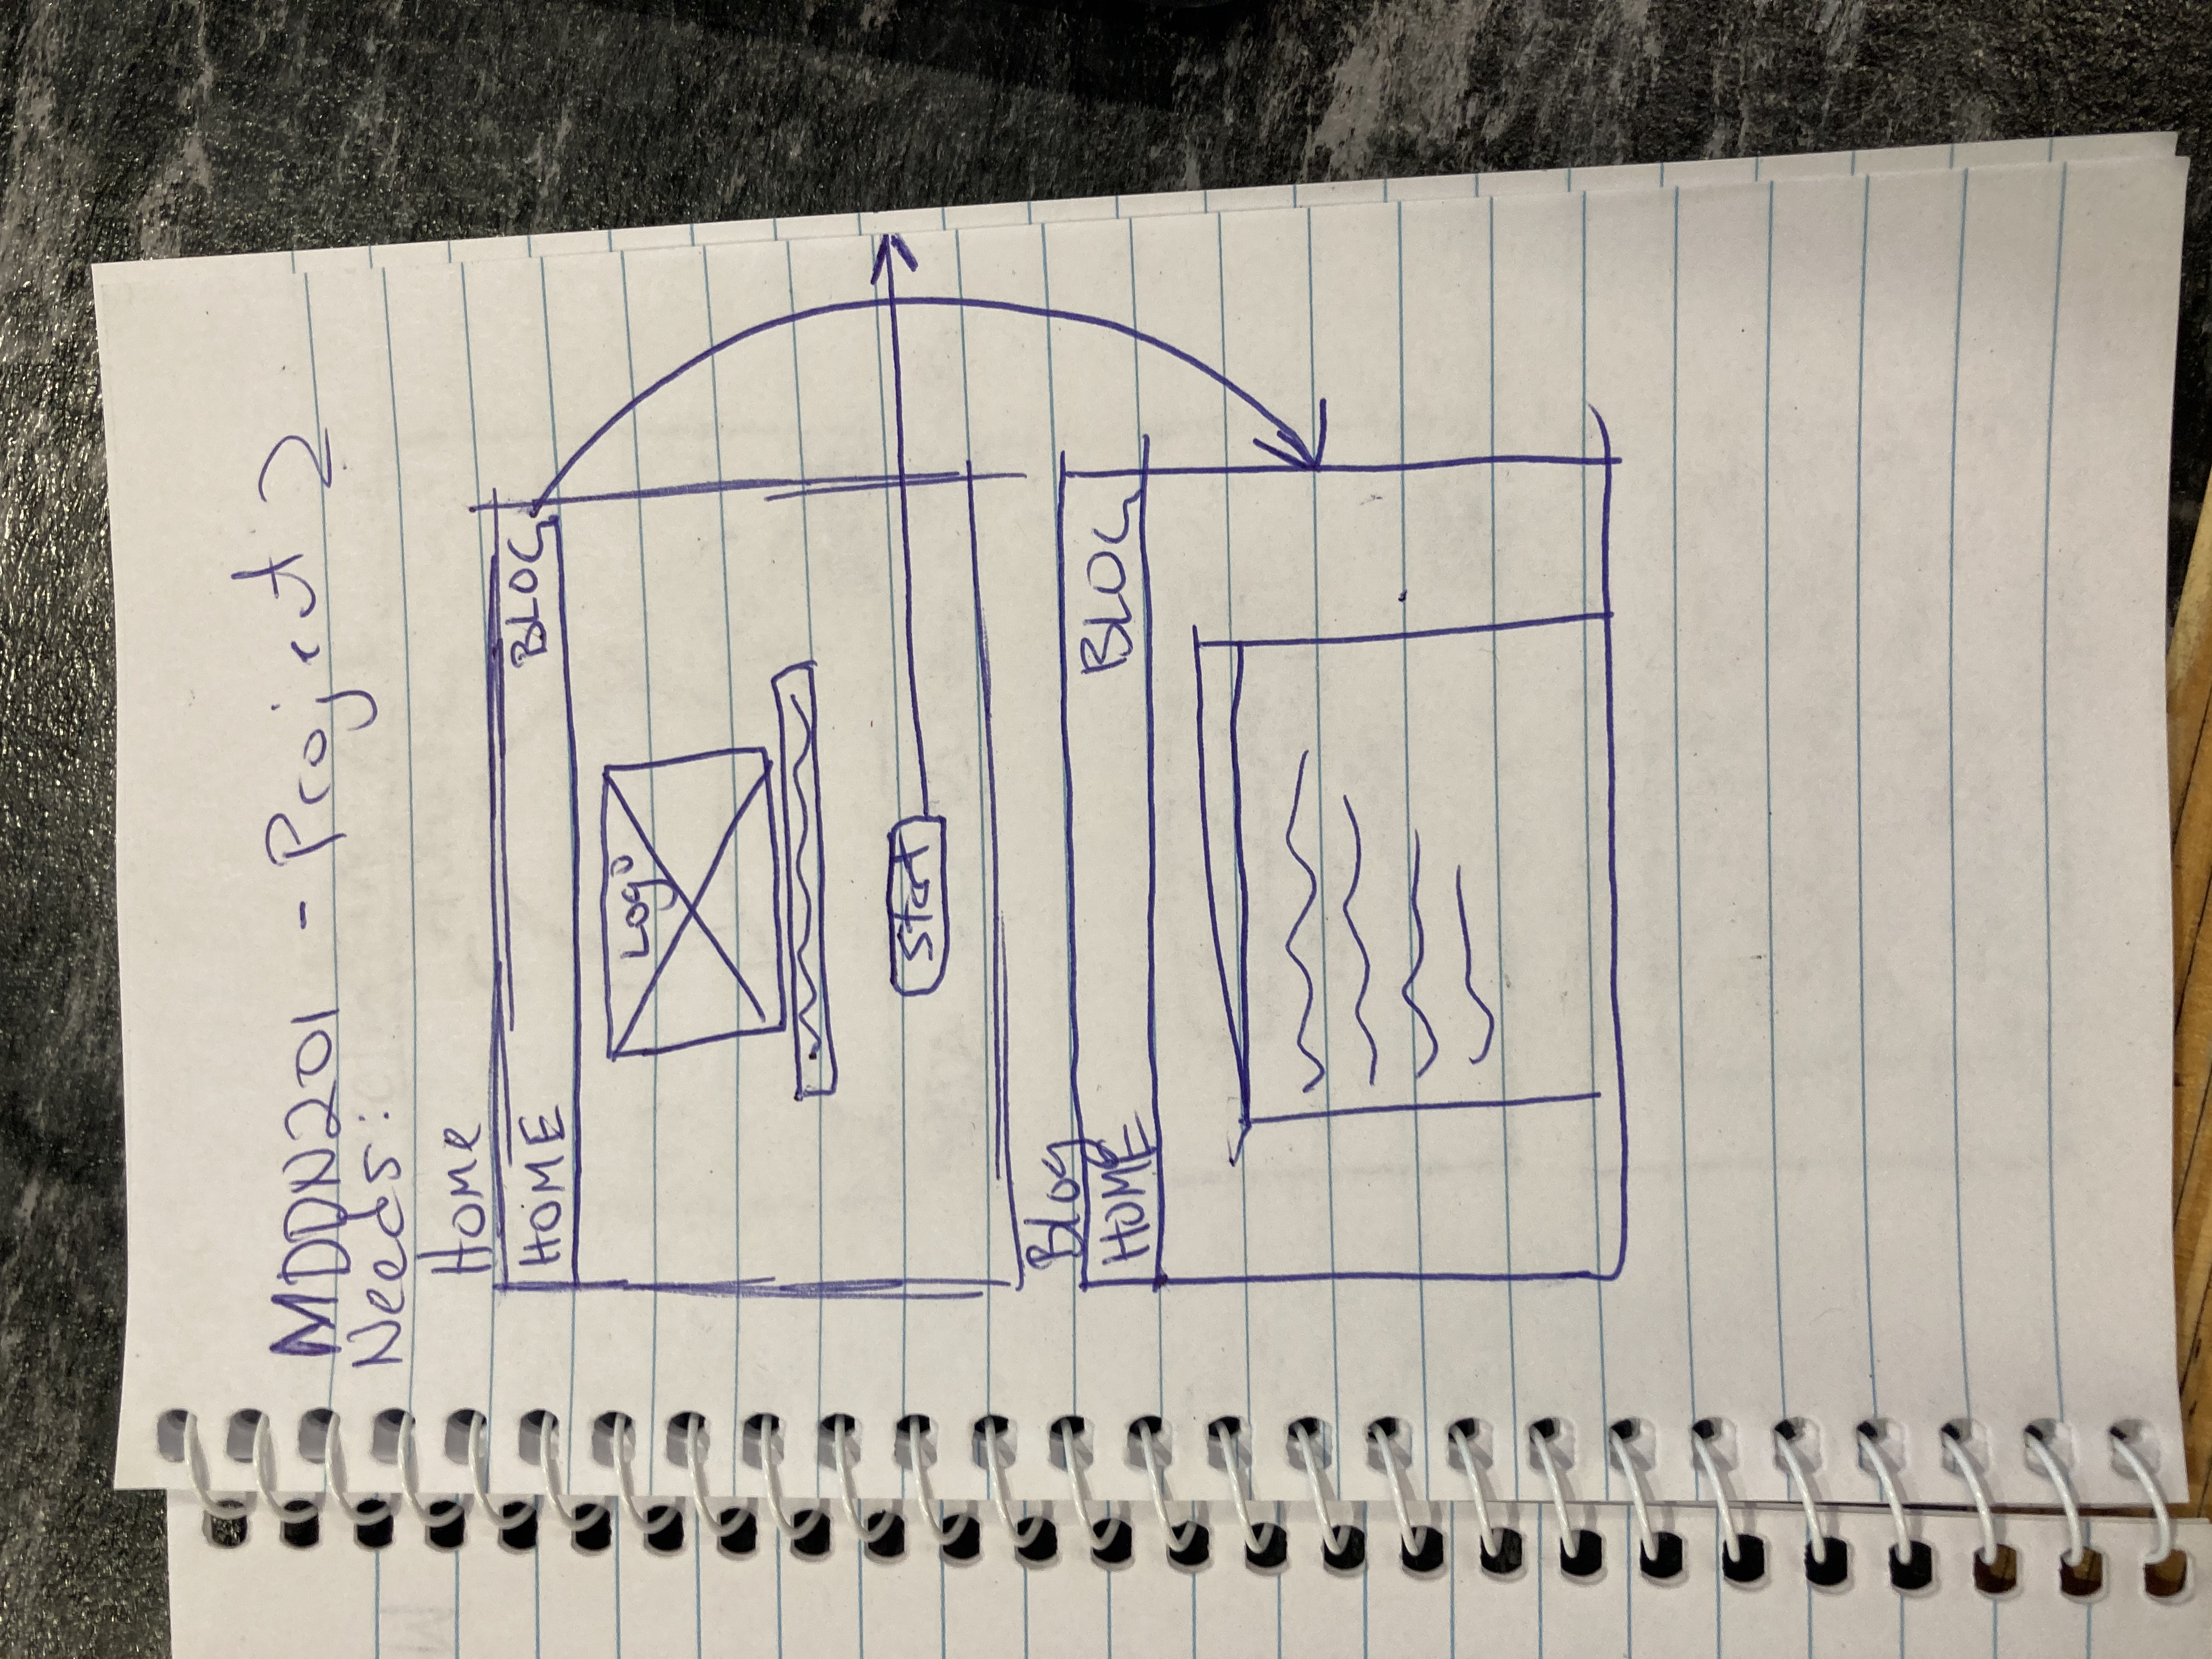 MDDN201 - Project 2
Needs:
Home
HOME BLOG
Logo
Start
Blog
HOME BLOG